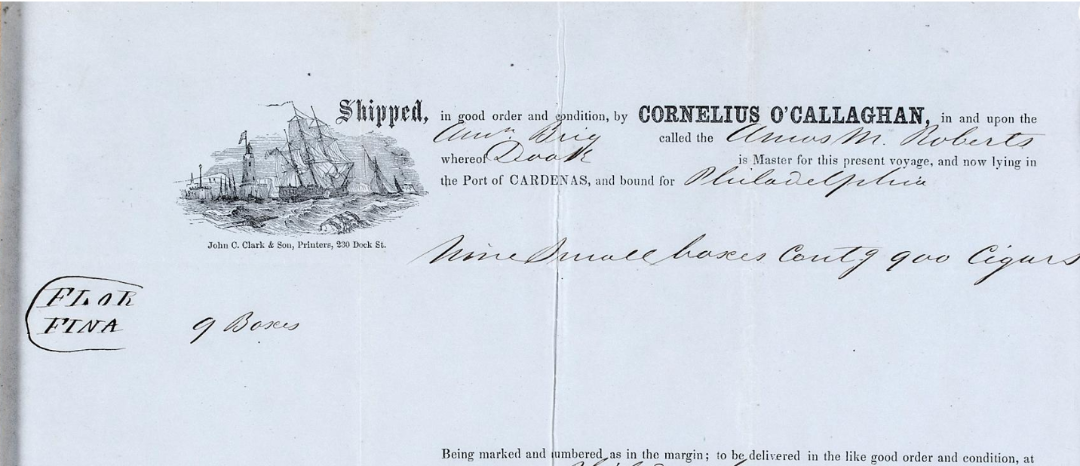 Shipped, in good order and condition, by CORNELIUS O'CALLAGHAN, in and upon the
Amn Brig called the Amos M. Roberts
whereof Doak is Master for this present voyage, and now lying in
the Port of CARDENAS, and bound for Philadelphia
John C. Clark & Son, Printers, 230 Dock St.
Nine Small boxes Contg 900 Cigars
FLOR
FINA
9 Boxes
Being marked and numbered as in the margin; to be delivered in the like good order and condition, at